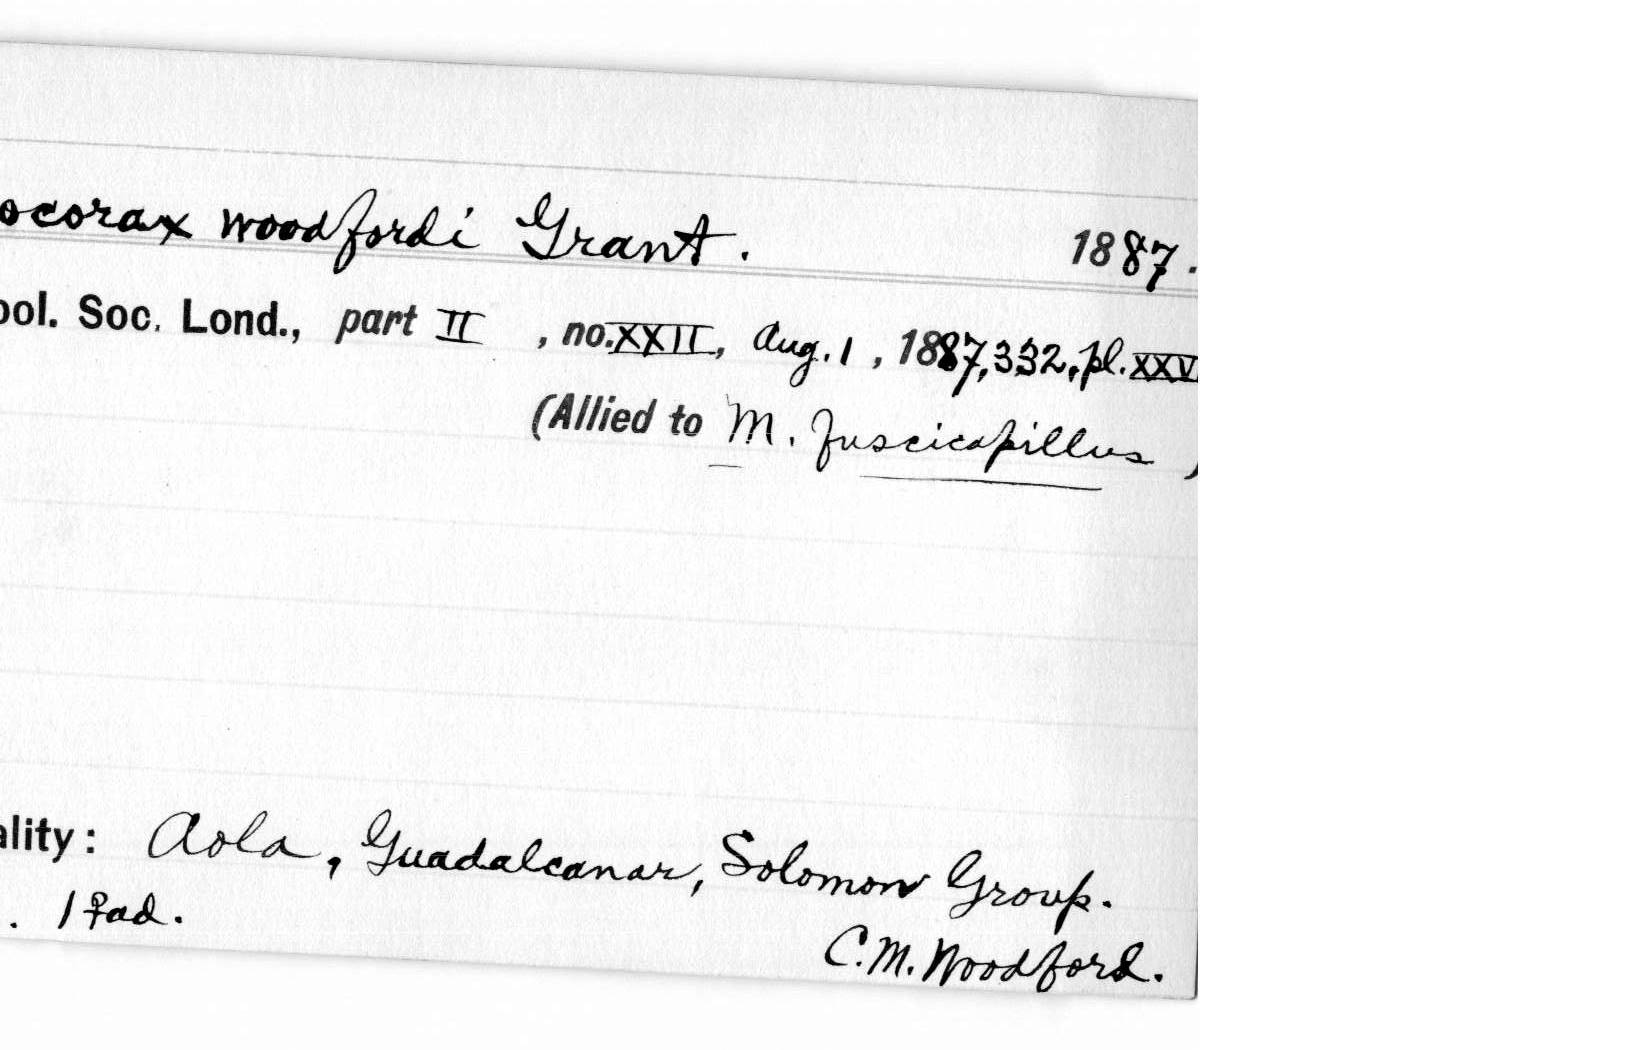 ocorax woodfordi Grant. 1887.
ool. Soc. Lond., part II , no. XXII, Aug. 1, 1887, 332, pl. XXVI
(Allied to M. fuscicapillus )
ality: Aola, Guadalcanar, Solomon Group.
. 1 ♀ ad.
C. M. Woodford.